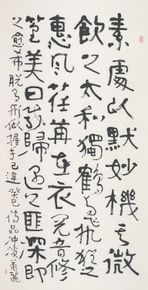 素處以默妙機其微
飲之太和獨鶴與飛猶之
惠風荏苒在衣閱音修
篁美曰載歸遇之匪深即
之愈希脱有形似握手已違 詩品冲淡